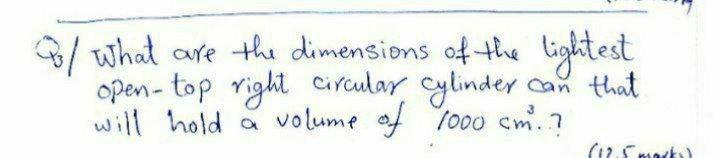 Q/ What are the dimensions of the lightest
open-top right circular cylinder can that
will hold a volume of 1000 cm³.?
(12.5 marks)